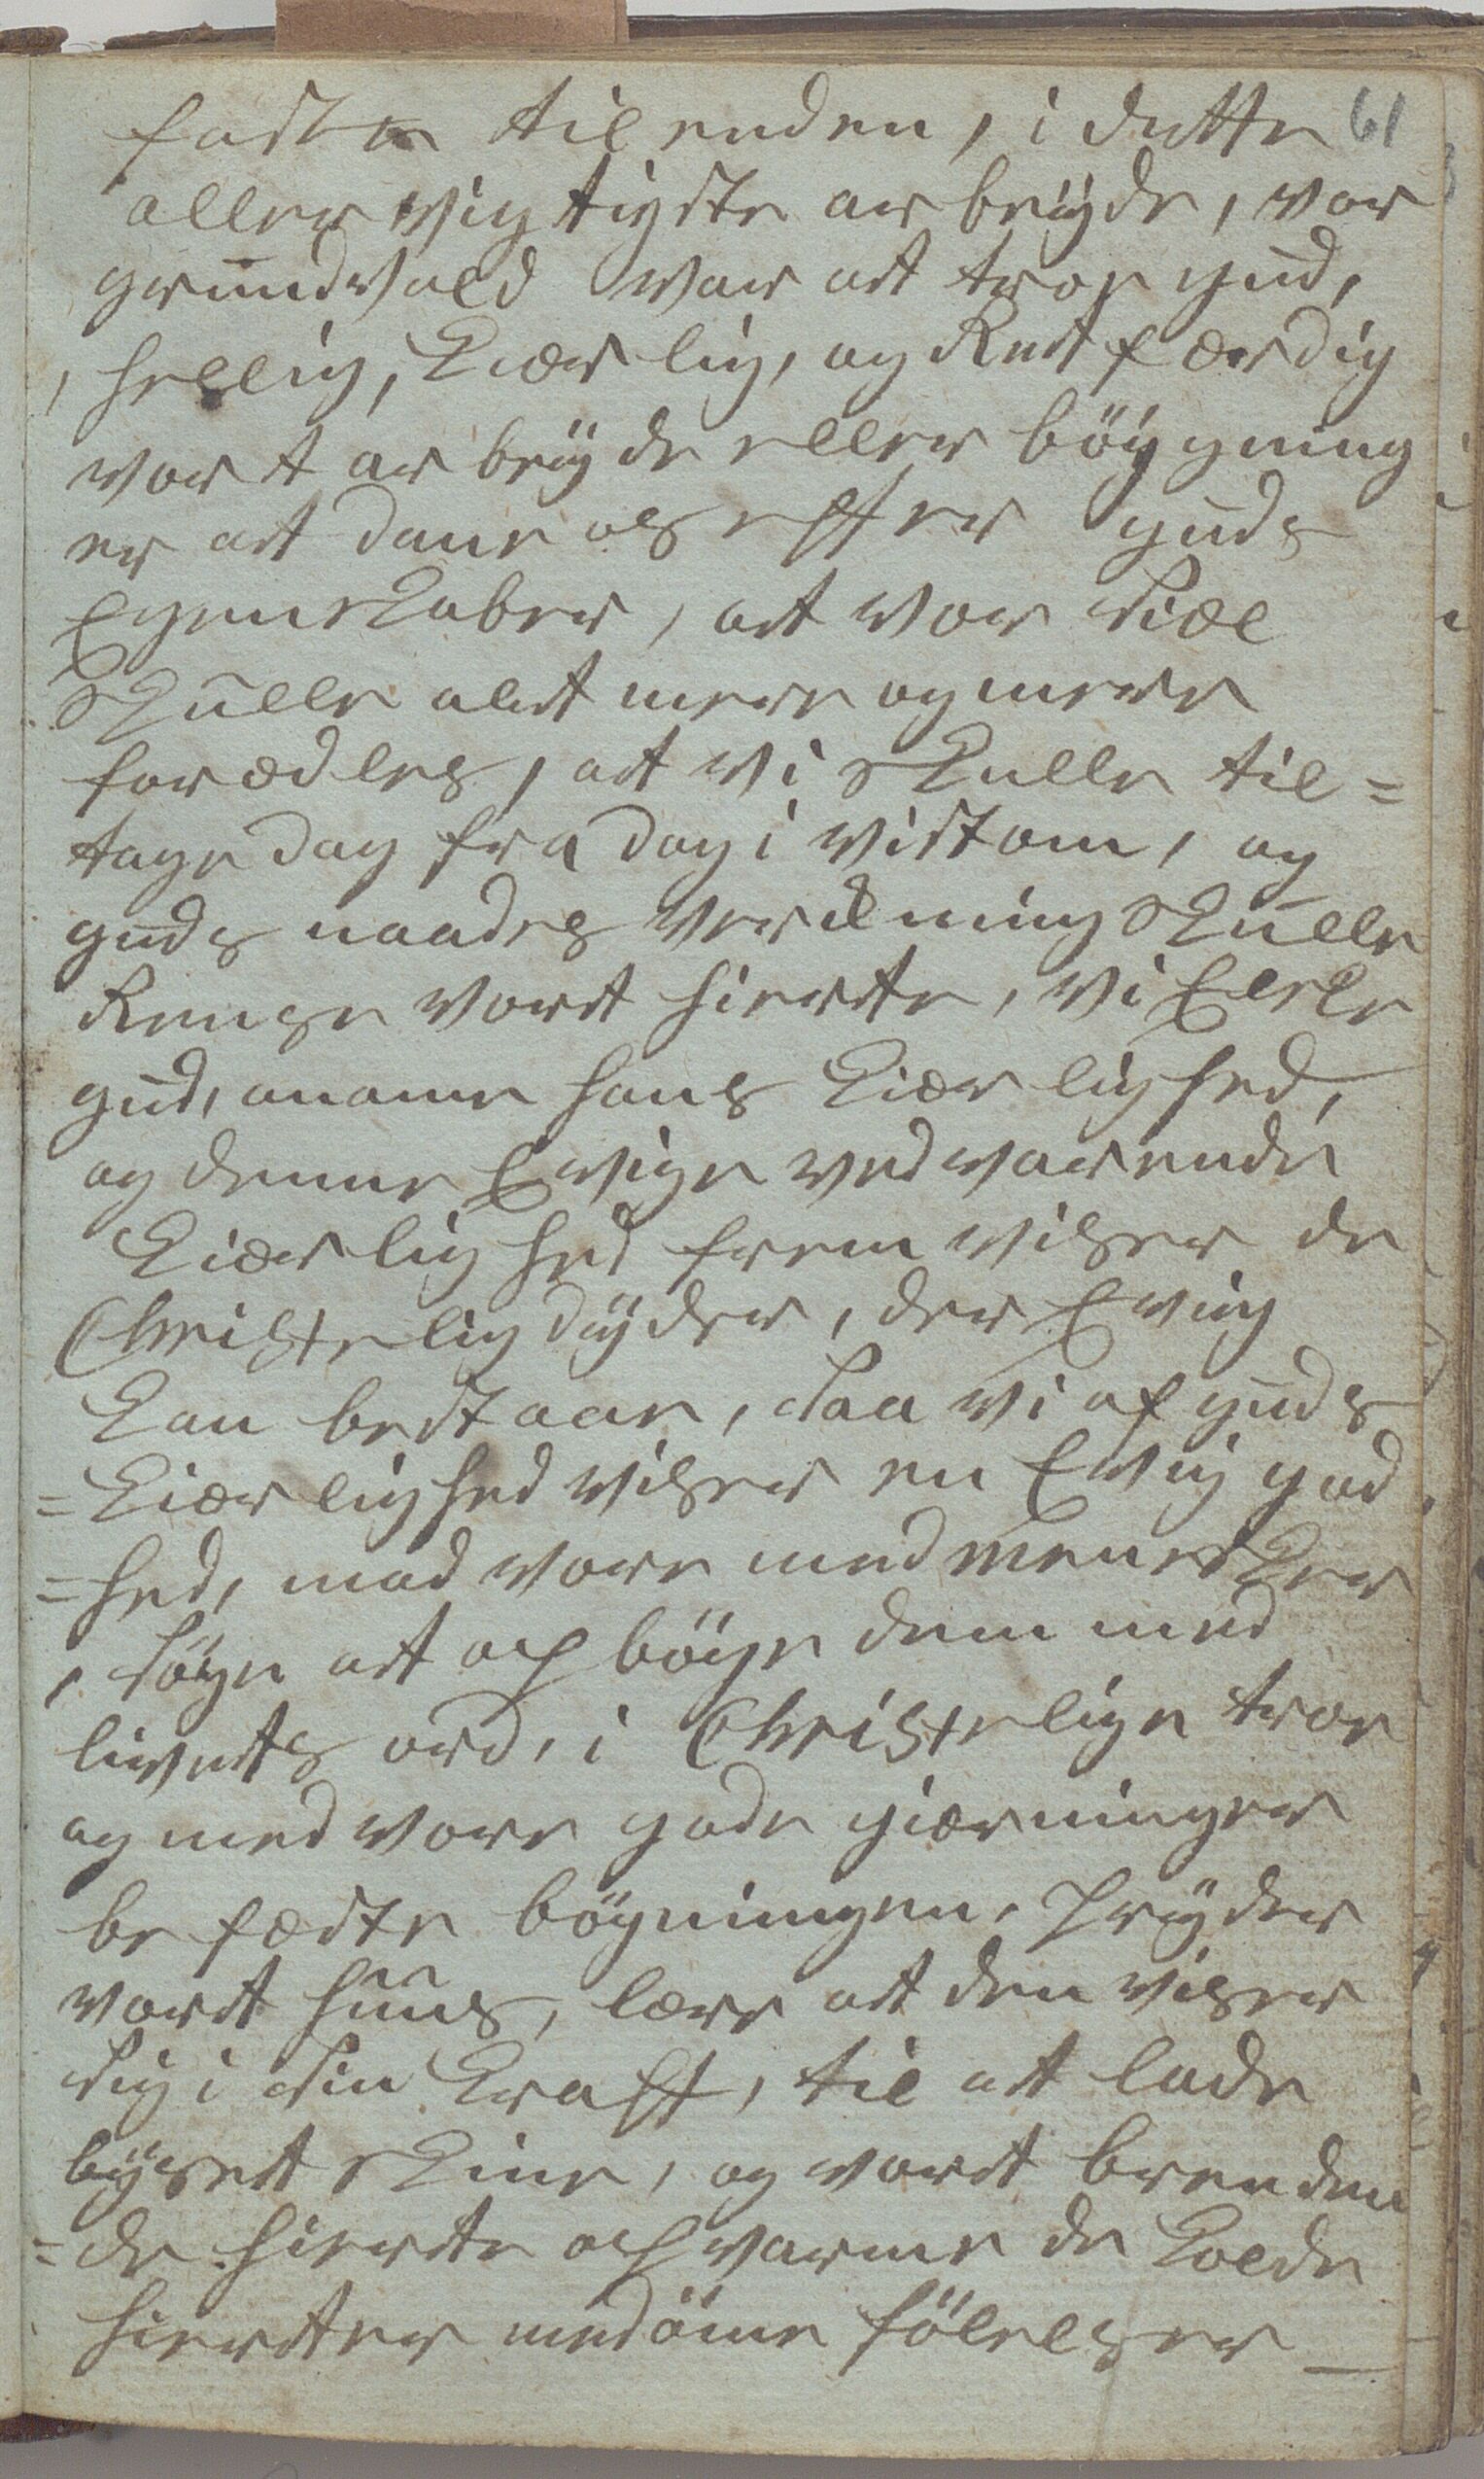 faste til enden, i dette 61
aller vigtigste arbeÿde, vor
grundvold var at troe gud,
, hellig, Kiærlig, og Retfærdig
vort arbeÿde eller bÿgning
er at dane os efter guds
Egenskaber, at vor siæl
Skulle alt mere og mere
forædles, at vi skulle til=
tage dag fra dag i visdom, og
guds naades virkning skulle
Rense vort hierte, vi Elske
gud, aname hans Kiærlighed,
og denne Evige vedvarende
Kiærlighed fremviser de
Christelig dÿder, der Evig
Kan bestaae, saa vi af guds
=Kiærlighed viser en Evig god
=hed, mod vore medmennesker
, søge at opbÿge dem med
livets ord, i Christelige troe
og med vore gode gierninger
befæste bÿgningen, Prÿder
vort huus, lære at den viser
sig i sin Kraft, til at lade
lÿset skine, og vort brenden
=de hierte opvarme de Kolde
hierter med ömme fölelser _